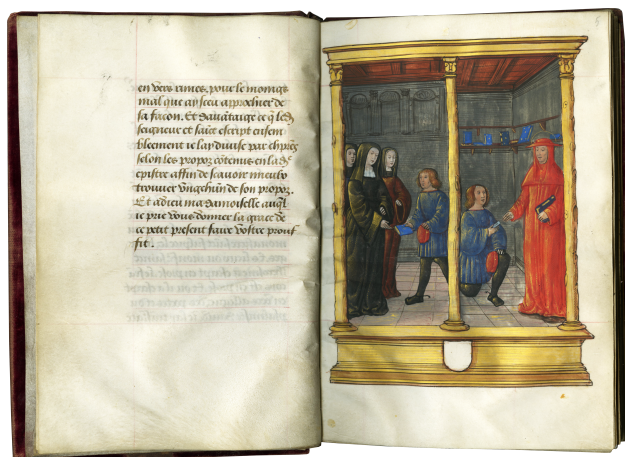 en vers rimes, pour le moings
mal que ay sceu approcher de
sa facon. Et davātaige ce q̄ led̄
seigneur et saīt escript ensem
blement ie lay divise par chp̄res
selon les propoz cōtenus en lad̄
epistre affin de scavoir mieulx
trouver ung chūn de son propoz.
Et adieu ma damoiselle auq̄l
ie prie vous donner la grace de
ce petit present faire vostre prouf
fit.